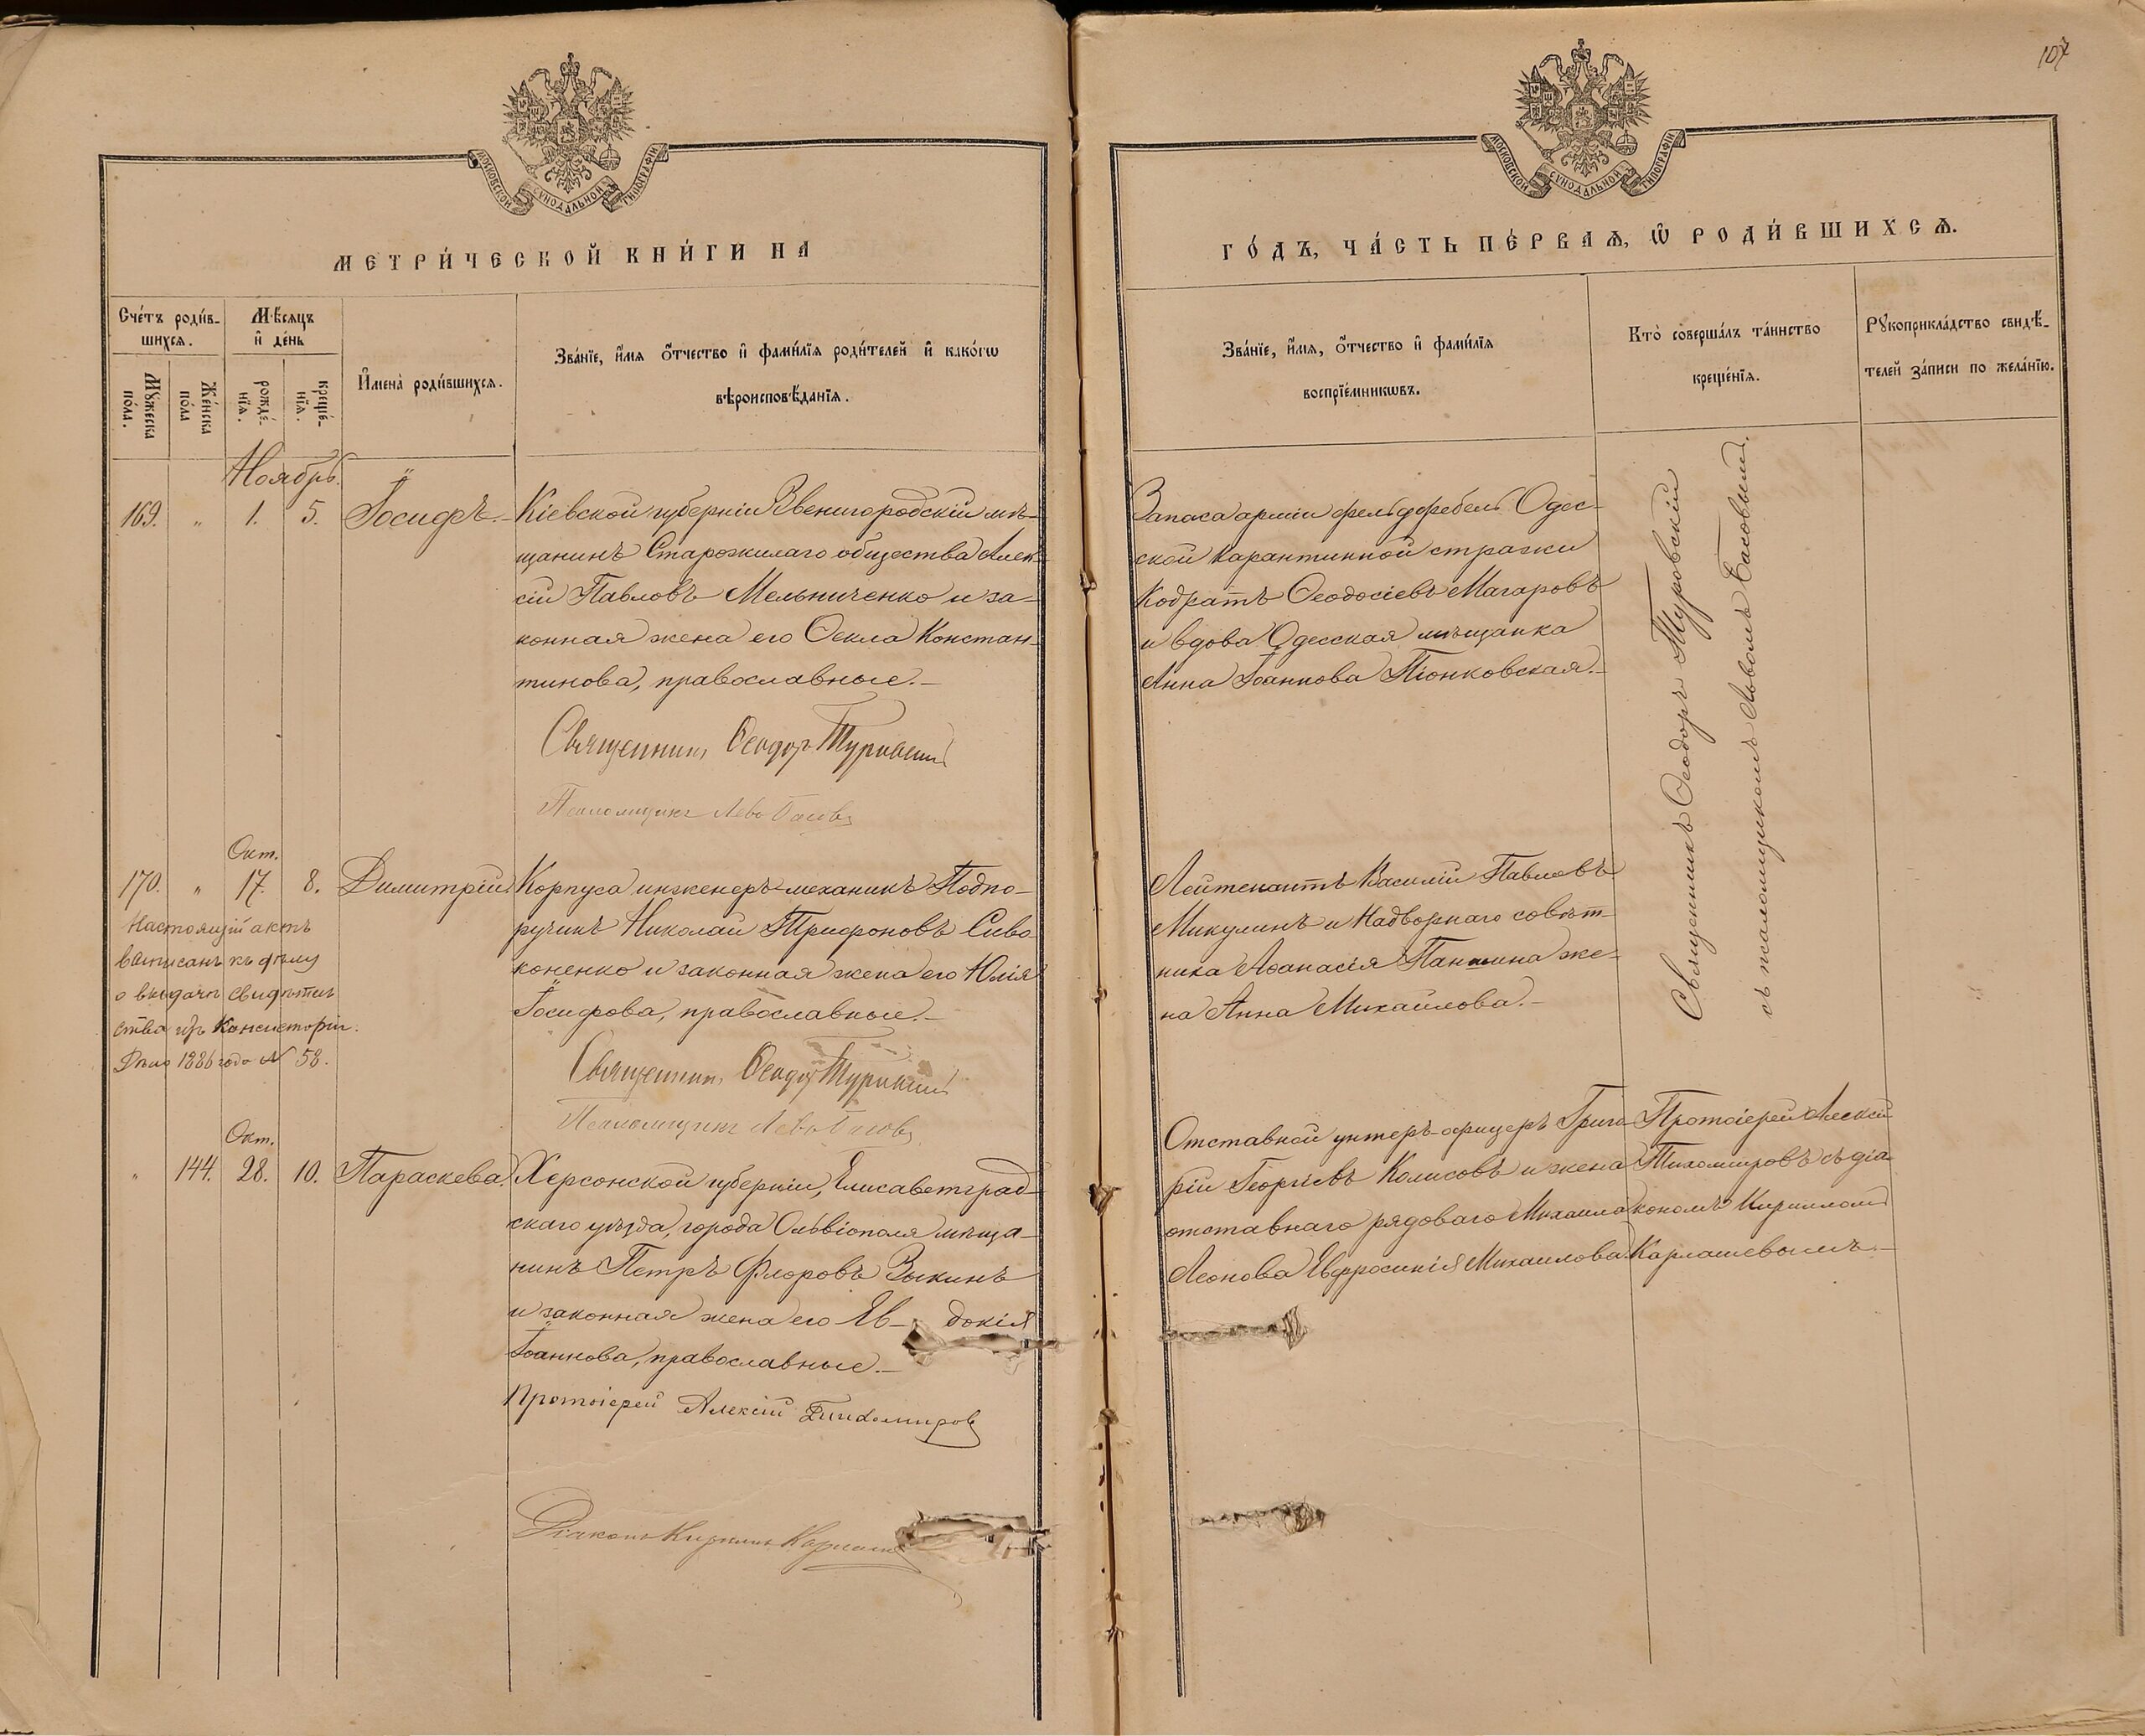 107
МОСКОВСКОЙ СѴНОДАЛЬНОЙ ТИПОГРАФІИ
МОСКОВСКОЙ СѴНОДАЛЬНОЙ ТИПОГРАФІИ
МЕТРИ́ЧЕСКОЙ КНИ́ГИ НА
ГО́ДЪ, ЧА́СТЬ ПЕ́РВАѦ, Ѡ҆ РОДИ́ВШИХСѦ.
Сче́тъ роди́в-
шихсѧ.
Мꙋ́жеска
по́ла.
Же́нска
по́ла
Мѣ́сѧцъ
и҆ де́нь
рожде́-
нїѧ.
креще́-
нїѧ.
И҆мена̀ роди́вшихсѧ.
Зва́нїе, и҆́мѧ ѻ҆́тчество и҆ фами́лїѧ роди́телей и҆ како́гѡ
вѣроисповѣ́данїѧ.
Зва́нїе, и҆́мѧ, ѻ҆́тчество и҆ фами́лїѧ
воспрїе́мникѡвъ.
Кто̀ соверша́лъ та́инство
креще́нїѧ.
Рꙋкоприкла́дство свидѣ́-
телей за́писи по жела́нїю.
Ноябрь.
169. „ 1. 5. Іосифъ.
Кіевской губерніи Звенигородскій мѣ-
щанинъ Старожилаго общества Алек-
сій Павловъ Мельниченко и за-
конная жена его Ѳекла Констан-
тинова, православные.
Священникъ Ѳеодоръ Туровскій
Псаломщикъ Левъ Басовъ
Запаса арміи фельдфебель Одес-
ской карантинной стражи
Кодратъ Ѳеодосіевъ Магаровъ
и вдова Одесская мѣщанка
Анна Іоаннова Піонковская.
Священникъ Ѳеодоръ Туровскій
съ псаломщикомъ Львомъ Басовымъ.
Окт.
170. „ 17. 8. Димитрій.
Настоящій актъ
выписанъ къ дѣлу
о выдачѣ свидѣтель
ства изъ Консисторіи.
Дѣло 1886 года № 58.
Корпуса инженеръ-механикъ Подпо-
ручикъ Николай Трифоновъ Сиво-
коненко и законная жена его Юлія
Іосифова, православные.
Священникъ Ѳеодоръ Туровскій
Псаломщикъ Левъ Басовъ
Лейтенантъ Василій Павловъ
Микулинъ и Надворнаго совѣт-
ника Аѳанасія Паншина же-
на Анна Михайлова.
Окт.
„ 144. 28. 10. Параскева.
Херсонской губерніи, Елисаветград-
скаго уѣзда, города Ольвіополя мѣща-
нинъ Петръ Флоровъ Зыкинъ
и законная жена его Ев- докія
Іоаннова, православные.
Протоіерей Алексій Тихомировъ
Діаконъ Кириллъ
Отставной унтеръ-офицеръ Григо-
рій Георгіевъ Колисовъ и жена
отставнаго рядоваго Михаила
Леонова Евфросинія Михаилова.
Протоіерей Алексій
Тихомировъ съ діа-
кономъ Кирилломъ
Карлашевымъ.